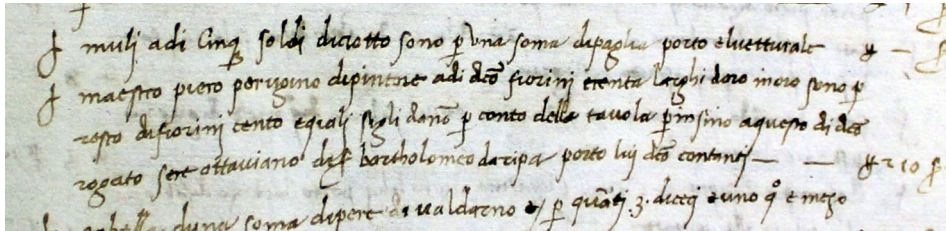 muli adi cinq soldi diciotto sono p una soma dipaglia porto elvetturale
maestro piero perugino dipintore adi dco fiorini trenta larghi doro inoro sono p
resto di fiorini cento equali segli dano p conto della tavola p insino aquesto di dco
rogato sere ottaviano di s bartholomeo daripa porto lui dco contanti — —
duna soma dipere di valdarno p quati 3 dieci e uno qo e mezo